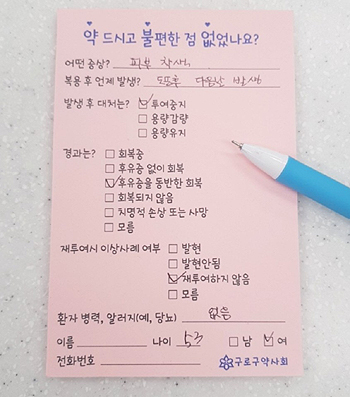 약 드시고 불편한 점 없었나요?
어떤 증상? 피부 착색.
복용 후 언제 발생? 도포후 다음날 발생
발생 후 대처는? ☑ 투여중지
☐ 용량감량
☐ 용량유지
경과는? ☐ 회복중
☐ 후유증 없이 회복
☑ 후유증을 동반한 회복
☐ 회복되지 않음
☐ 치명적 손상 또는 사망
☐ 모름
재투여시 이상사례 여부 ☐ 발현
☐ 발현안됨
☑ 재투여하지 않음
☐ 모름
환자 병력, 알러지(예, 당뇨) 없음
이름 나이 53 ☐ 남 ☑ 여
전화번호 구로구약사회